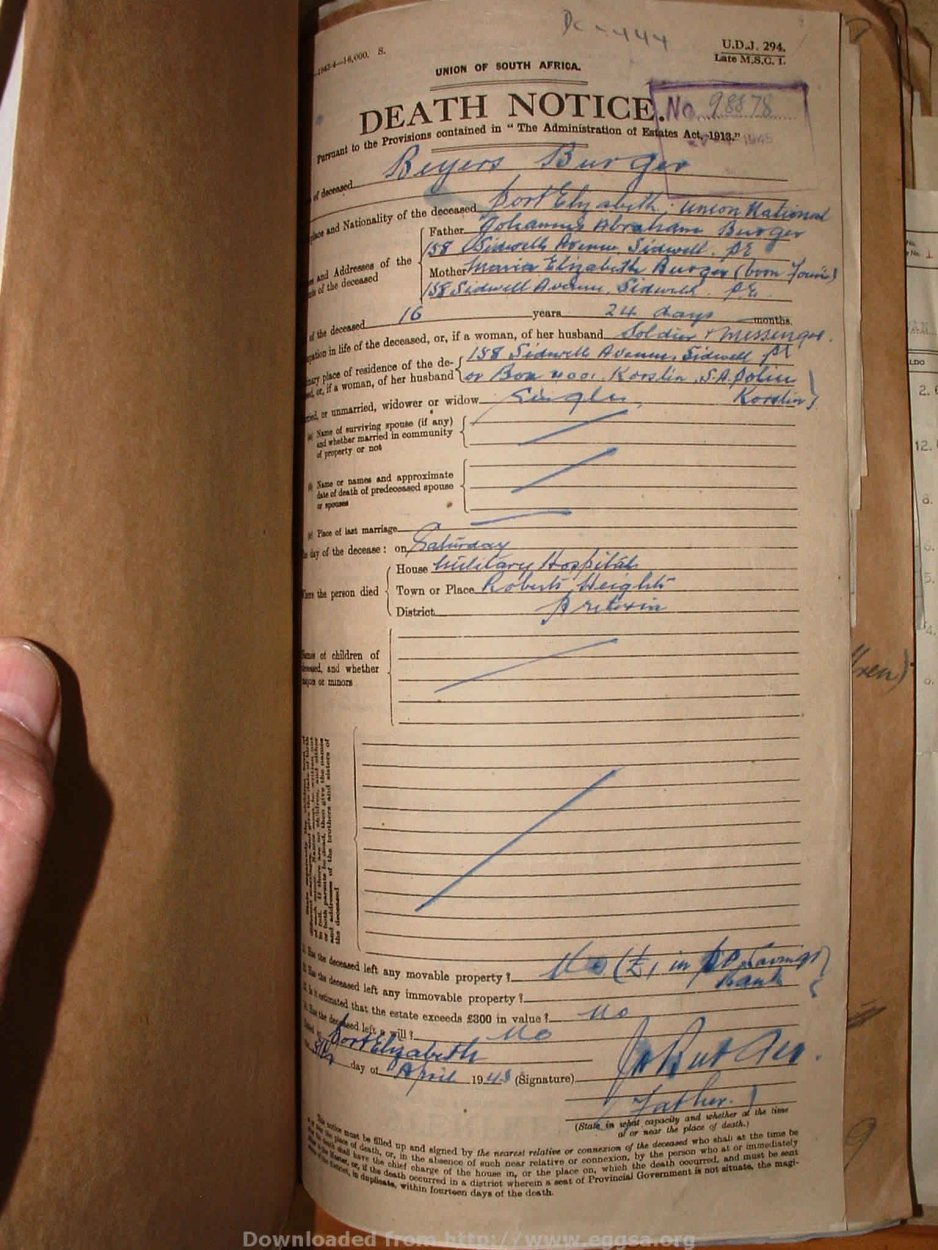 Dc - 444
-1943-4—16,000. S.
U.D.J. 294.
Late M.S.C. 1.
UNION OF SOUTH AFRICA.
DEATH NOTICE.
No. 98878
Pursuant to the Provisions contained in "The Administration of Estates Act, 1913."
of deceased Beyers Burger
place and Nationality of the deceased Port Elizabeth, Union National
Father Johannes Abraham Burger
158 Sidwell Avenue Sidwell. PE
and Addresses of the
of the deceased
Mother Maria Elizabeth Burger (born
158 Sidwell Avenue, Sidwell. P.E.
of the deceased 16 years 24 days months.
pation in life of the deceased, or, if a woman, of her husband Soldier & Messenger.
nary place of residence of the de- 158 Sidwell Avenue, Sidwell PE
ed, or, if a woman, of her husband or Korsten, S.A. Police
Korsten
ried, or unmarried, widower or widow Single,
(a) Name of surviving spouse (if any)
and whether married in community
of property or not
(b) Name or names and approximate
date of death of predeceased spouse
or spouses
(c) Place of last marriage
day of the decease: on Saturday
House Military Hospital
here the person died
Town or Place Roberts Heights
District Pretoria
ames of children of
deceased, and whether
majors or minors
or both parents be dead, then give the names
and addresses of the brothers and sisters of
the deceased
Has the deceased left any movable property? No (£1 in P.O. Savings
Bank
Has the deceased left any immovable property?
Is it estimated that the estate exceeds £300 in value? No
Has the deceased left a will? No
Dated at Port Elizabeth
8th day of April 1943 (Signature) Burger.
Father.
(State in what capacity and whether at the time
of or near the place of death.)
This notice must be filled up and signed by the nearest relative or connexion of the deceased who shall at the time be
the place of death, or, in the absence of such near relative or connexion, by the person who at or immediately
the death shall have the chief charge of the house in, or the place on, which the death occurred, and must be sent
the Master, or, if the death occurred in a district wherein a seat of Provincial Government is not situate, the magi-
of the district, in duplicate, within fourteen days of the death.
Downloaded from http://www.eggsa.org